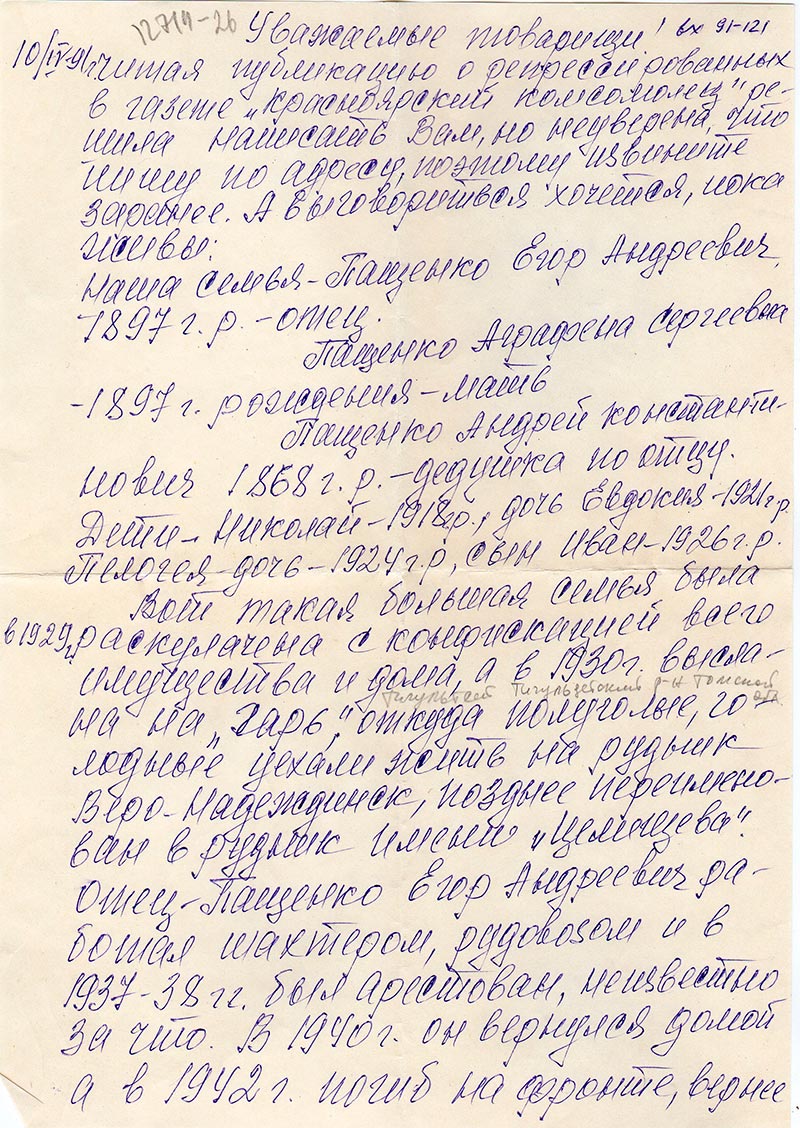 12719-26
Уважаемые товарищи! вх 91-121
10/IV-91г. читая публикацию о репрессированных
в газете „Красноярский комсомолец" ре-
шила написать Вам, но неуверена, что
пишу по адресу, поэтому извините
заранее. А выговориться хочется, пока
живы:
Наша семья - Пащенко Егор Андреевич,
-1897 г. р. - отец.
Пащенко Аграфена Сергеевна
-1897 г. рождения - мать
Пащенко Андрей Константи-
нович 1868 г. р. - дедушка по отцу.
Дети - Николай - 1918гр., дочь Евдокия - 1921г.р.
Пелогея - дочь - 1924 г.р, сын Иван - 1926 г.р.
Вот такая большая семья была
в 1929г. раскулачена с конфискацией всего
имущества и дома, а в 1930г. высла-
Тисульский р-н Томской
обл.
на на „Сарь", откуда полуголые, го-
лодные уехали жить на рудник
Веро-Надеждинск, позднее переимено-
ван в рудник имени „Целищева".
Отец - Пащенко Егор Андреевич ра-
ботал шахтером, рудовозом и в
1937-38 гг. был арестован, неизвестно
за что. В 1940г. он вернулся домой
а в 1942 г. погиб на фронте, вернее